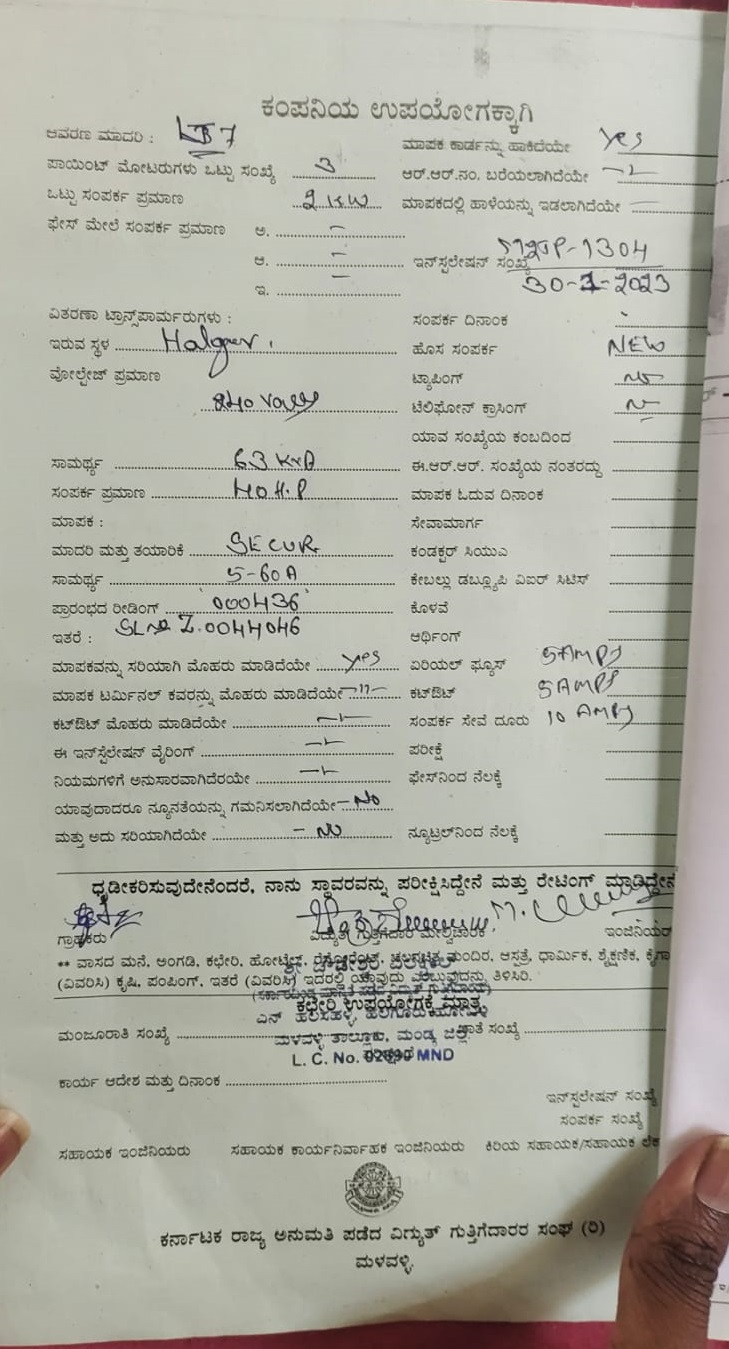 ಕಂಪನಿಯ ಉಪಯೋಗಕ್ಕಾಗಿ
ಆವರಣ ಮಾದರಿ : LT 7
ಮಾಪಕ ಕಾರ್ಡನ್ನು ಹಾಕಿದೆಯೇ yes
ಪಾಯಿಂಟ್ ಮೋಟರುಗಳು ಒಟ್ಟು ಸಂಖ್ಯೆ 3
ಆರ್.ಆರ್.ನಂ. ಬರೆಯಲಾಗಿದೆಯೇ
ಒಟ್ಟು ಸಂಪರ್ಕ ಪ್ರಮಾಣ 2 KW
ಮಾಪಕದಲ್ಲಿ ಹಾಳೆಯನ್ನು ಇಡಲಾಗಿದೆಯೇ
ಫೇಸ್ ಮೇಲೆ ಸಂಪರ್ಕ ಪ್ರಮಾಣ ಅ. –
ಆ. –
ಇನ್‌ಸ್ಪಲೇಷನ್ ಸಂಖ್ಯೆ -1304
ಇ. –
30-1-2023
ವಿತರಣಾ ಟ್ರಾನ್ಸ್‌ಪಾರ್ಮರುಗಳು :
ಸಂಪರ್ಕ ದಿನಾಂಕ
ಇರುವ ಸ್ಥಳ
ಹೊಸ ಸಂಪರ್ಕ NEW
ವೋಲ್ಟೇಜ್ ಪ್ರಮಾಣ
ಟ್ಯಾಪಿಂಗ್ No
240 Volts
ಟೆಲಿಫೋನ್ ಕ್ರಾಸಿಂಗ್
ಯಾವ ಸಂಖ್ಯೆಯ ಕಂಬದಿಂದ
ಸಾಮರ್ಥ್ಯ 63 KVA
ಈ.ಆರ್.ಆರ್. ಸಂಖ್ಯೆಯ ನಂತರದ್ದು
ಸಂಪರ್ಕ ಪ್ರಮಾಣ H.P
ಮಾಪಕ ಓದುವ ದಿನಾಂಕ
ಮಾಪಕ :
ಸೇವಾಮಾರ್ಗ
ಮಾದರಿ ಮತ್ತು ತಯಾರಿಕೆ SECUR
ಕಂಡಕ್ಟರ್ ಸಿಯುಎ
ಸಾಮರ್ಥ್ಯ 5-60A
ಕೇಬಲ್ಲು ಡಬ್ಲ್ಯೂಪಿ ವಿಐರ್ ಸಿಟಿಸ್
ಪ್ರಾರಂಭದ ರೀಡಿಂಗ್ 000436
ಕೊಳವೆ
ಇತರೆ : SL No Z.0044046
ಆರ್ಥಿಂಗ್
ಮಾಪಕವನ್ನು ಸರಿಯಾಗಿ ಮೊಹರು ಮಾಡಿದೆಯೇ yes
ಏರಿಯಲ್ ಫ್ಯೂಸ್ 5 AMPS
ಮಾಪಕ ಟರ್ಮಿನಲ್ ಕವರನ್ನು ಮೊಹರು ಮಾಡಿದೆಯೇ –11–
ಕಟ್‌ಔಟ್ 5 AMPS
ಕಟ್‌ಔಟ್ ಮೊಹರು ಮಾಡಿದೆಯೇ
ಸಂಪರ್ಕ ಸೇವೆ ದೂರು 10 AMPS
ಈ ಇನ್‌ಸ್ಟಲೇಷನ್ ವೈರಿಂಗ್
ಪರೀಕ್ಷೆ
ನಿಯಮಗಳಿಗೆ ಅನುಸಾರವಾಗಿದೆರಯೇ
ಫೇಸ್‌ನಿಂದ ನೆಲಕ್ಕೆ
ಯಾವುದಾದರೂ ನ್ಯೂನತೆಯನ್ನು ಗಮನಿಸಲಾಗಿದೆಯೇ – No
ಮತ್ತು ಅದು ಸರಿಯಾಗಿದೆಯೇ – No
ನ್ಯೂಟ್ರಲ್‌ನಿಂದ ನೆಲಕ್ಕೆ
ಧೃಡೀಕರಿಸುವುದೇನೆಂದರೆ, ನಾನು ಸ್ಥಾವರವನ್ನು ಪರೀಕ್ಷಿಸಿದ್ದೇನೆ ಮತ್ತು ರೇಟಿಂಗ್ ಮಾಡಿದ್ದೇನೆ
ಗ್ರಾಹಕರು ವಿದ್ಯುತ್ ಗುತ್ತಿಗೆದಾರ ಮೇಲ್ವಿಚಾರಕ ಇಂಜಿನಿಯರ್
** ವಾಸದ ಮನೆ, ಅಂಗಡಿ, ಕಛೇರಿ, ಹೋಟೆಲ್, ಮಂದಿರ, ಆಸ್ಪತ್ರೆ, ಧಾರ್ಮಿಕ, ಶೈಕ್ಷಣಿಕ,
(ವಿವರಿಸಿ) ಕೃಷಿ, ಪಂಪಿಂಗ್, ಇತರೆ (ವಿವರಿಸಿ) ಇದರಲ್ಲಿ ಯಾವುದು ಎಂಬುವುದನ್ನು ತಿಳಿಸಿರಿ.
ಕಛೇರಿ ಉಪಯೋಗಕ್ಕೆ ಮಾತ್ರ
ಮಂಜೂರಾತಿ ಸಂಖ್ಯೆ ಖಾತೆ ಸಂಖ್ಯೆ
ಮಳವಳ್ಳಿ ತಾಲ್ಲೂಕು, ಮಂಡ್ಯ ಜಿಲ್ಲೆ
L. C. No. MND
ಕಾರ್ಯ ಆದೇಶ ಮತ್ತು ದಿನಾಂಕ
ಇನ್‌ಸ್ಪಲೇಷನ್ ಸಂಖ್ಯೆ
ಸಂಪರ್ಕ ಸಂಖ್ಯೆ
ಸಹಾಯಕ ಇಂಜಿನಿಯರು ಸಹಾಯಕ ಕಾರ್ಯನಿರ್ವಾಹಕ ಇಂಜಿನಿಯರು ಕಿರಿಯ ಸಹಾಯಕ/ಸಹಾಯಕ
ಕರ್ನಾಟಕ ರಾಜ್ಯ ಅನುಮತಿ ಪಡೆದ ವಿದ್ಯುತ್ ಗುತ್ತಿಗೆದಾರರ ಸಂಘ (ರಿ)
ಮಳವಳ್ಳಿ.